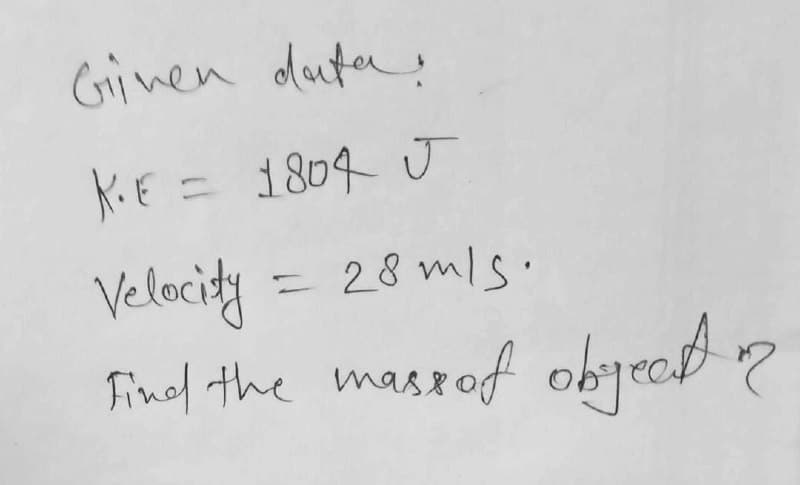 Given data:
K.E = 1804 J
Velocity = 28 m/s.
Find the mass of object?